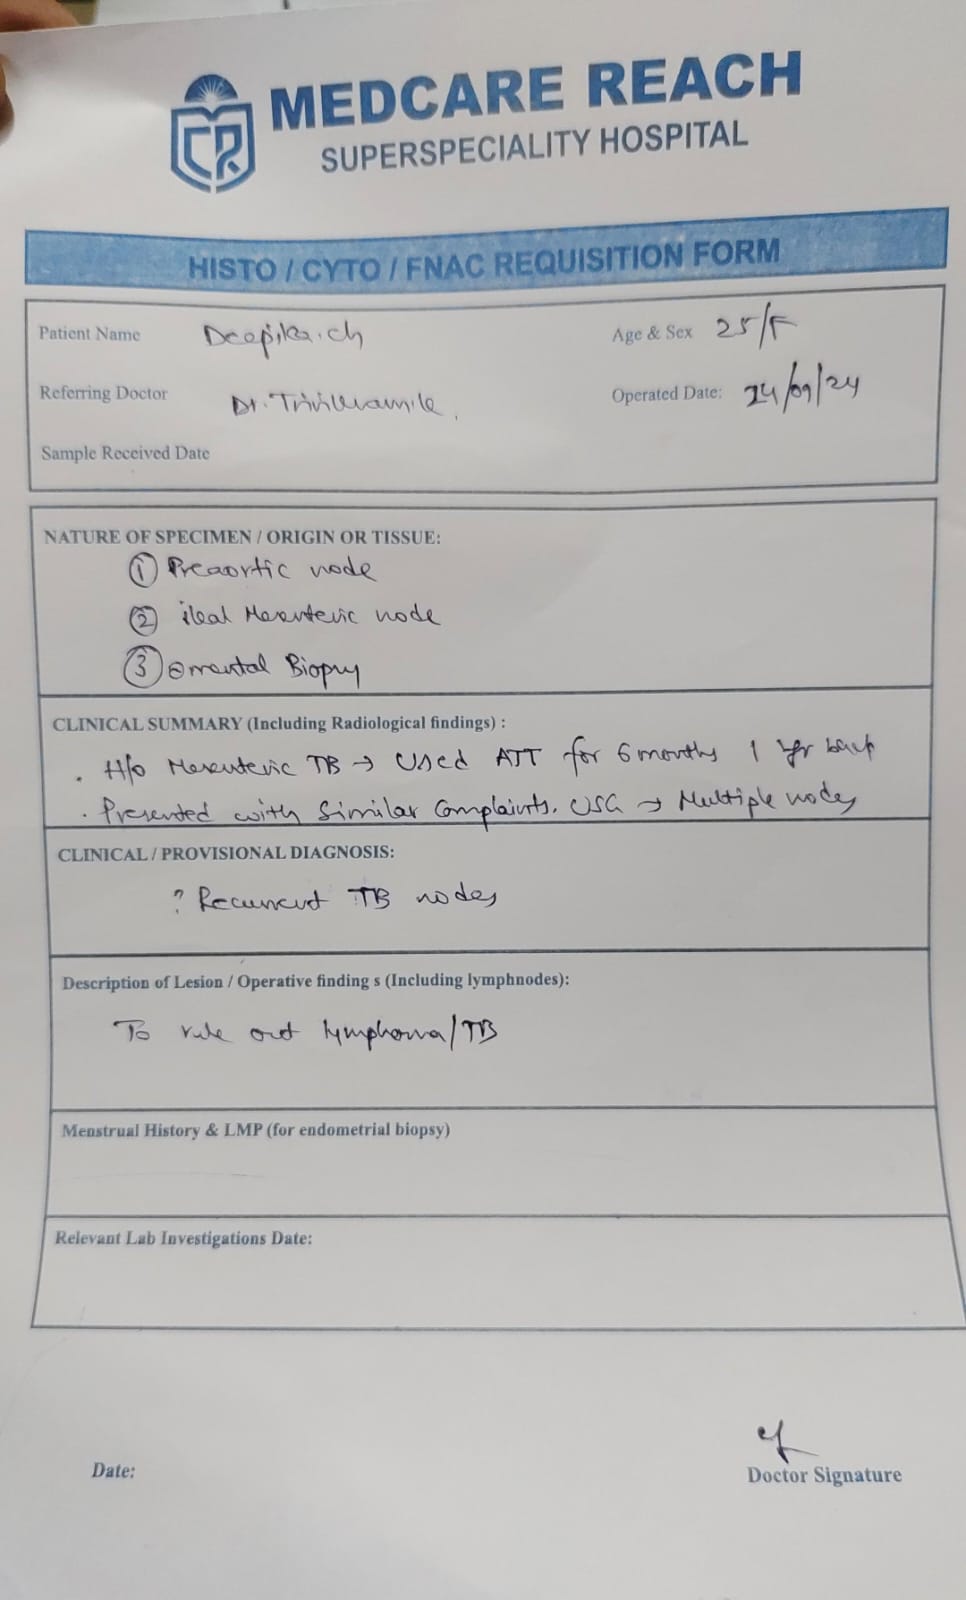 CR
MEDCARE REACH
SUPERSPECIALITY HOSPITAL
HISTO / CYTO / FNAC REQUISITION FORM
Patient Name Deepika.ch Age & Sex 25/F
Referring Doctor Dr. Operated Date: 24/09/24
Sample Received Date
NATURE OF SPECIMEN / ORIGIN OR TISSUE:
① Preaortic node
② ileal Mesenteric node
③ omental Biopsy
CLINICAL SUMMARY (Including Radiological findings) :
. H/o Mesenteric TB → Used ATT for 6 months 1 yr back
. Presented with Similar Complaints. USG → Multiple nodes
CLINICAL / PROVISIONAL DIAGNOSIS:
? Recurrent TB nodes
Description of Lesion / Operative finding s (Including lymphnodes):
To rule out lymphoma/TB
Menstrual History & LMP (for endometrial biopsy)
Relevant Lab Investigations Date:
Date:
Doctor Signature